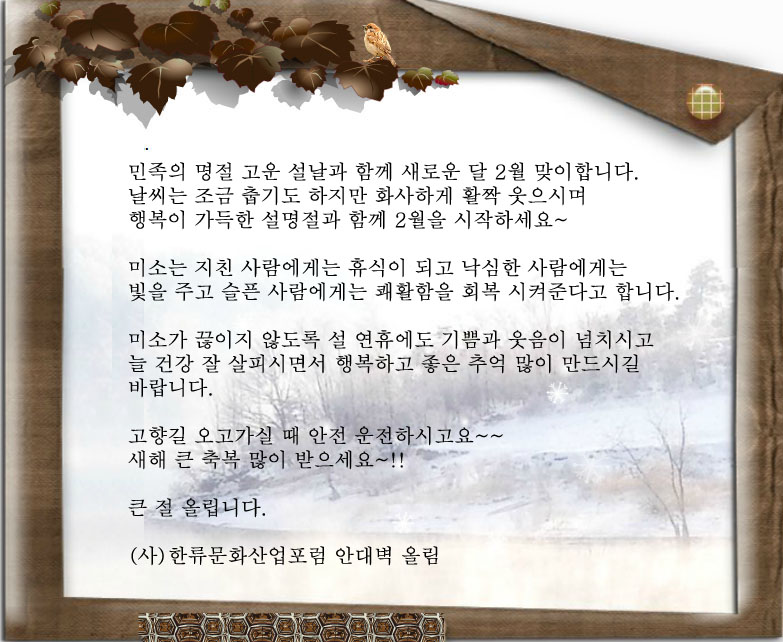 민족의 명절 고운 설날과 함께 새로운 달 2월 맞이합니다.
날씨는 조금 춥기도 하지만 화사하게 활짝 웃으시며
행복이 가득한 설명절과 함께 2월을 시작하세요~
미소는 지친 사람에게는 휴식이 되고 낙심한 사람에게는
빛을 주고 슬픈 사람에게는 쾌활함을 회복 시켜준다고 합니다.
미소가 끊이지 않도록 설 연휴에도 기쁨과 웃음이 넘치시고
늘 건강 잘 살피시면서 행복하고 좋은 추억 많이 만드시길
바랍니다.
고향길 오고가실 때 안전 운전하시고요~~
새해 큰 축복 많이 받으세요~!!
큰 절 올립니다.
(사)한류문화산업포럼 안대벽 올림